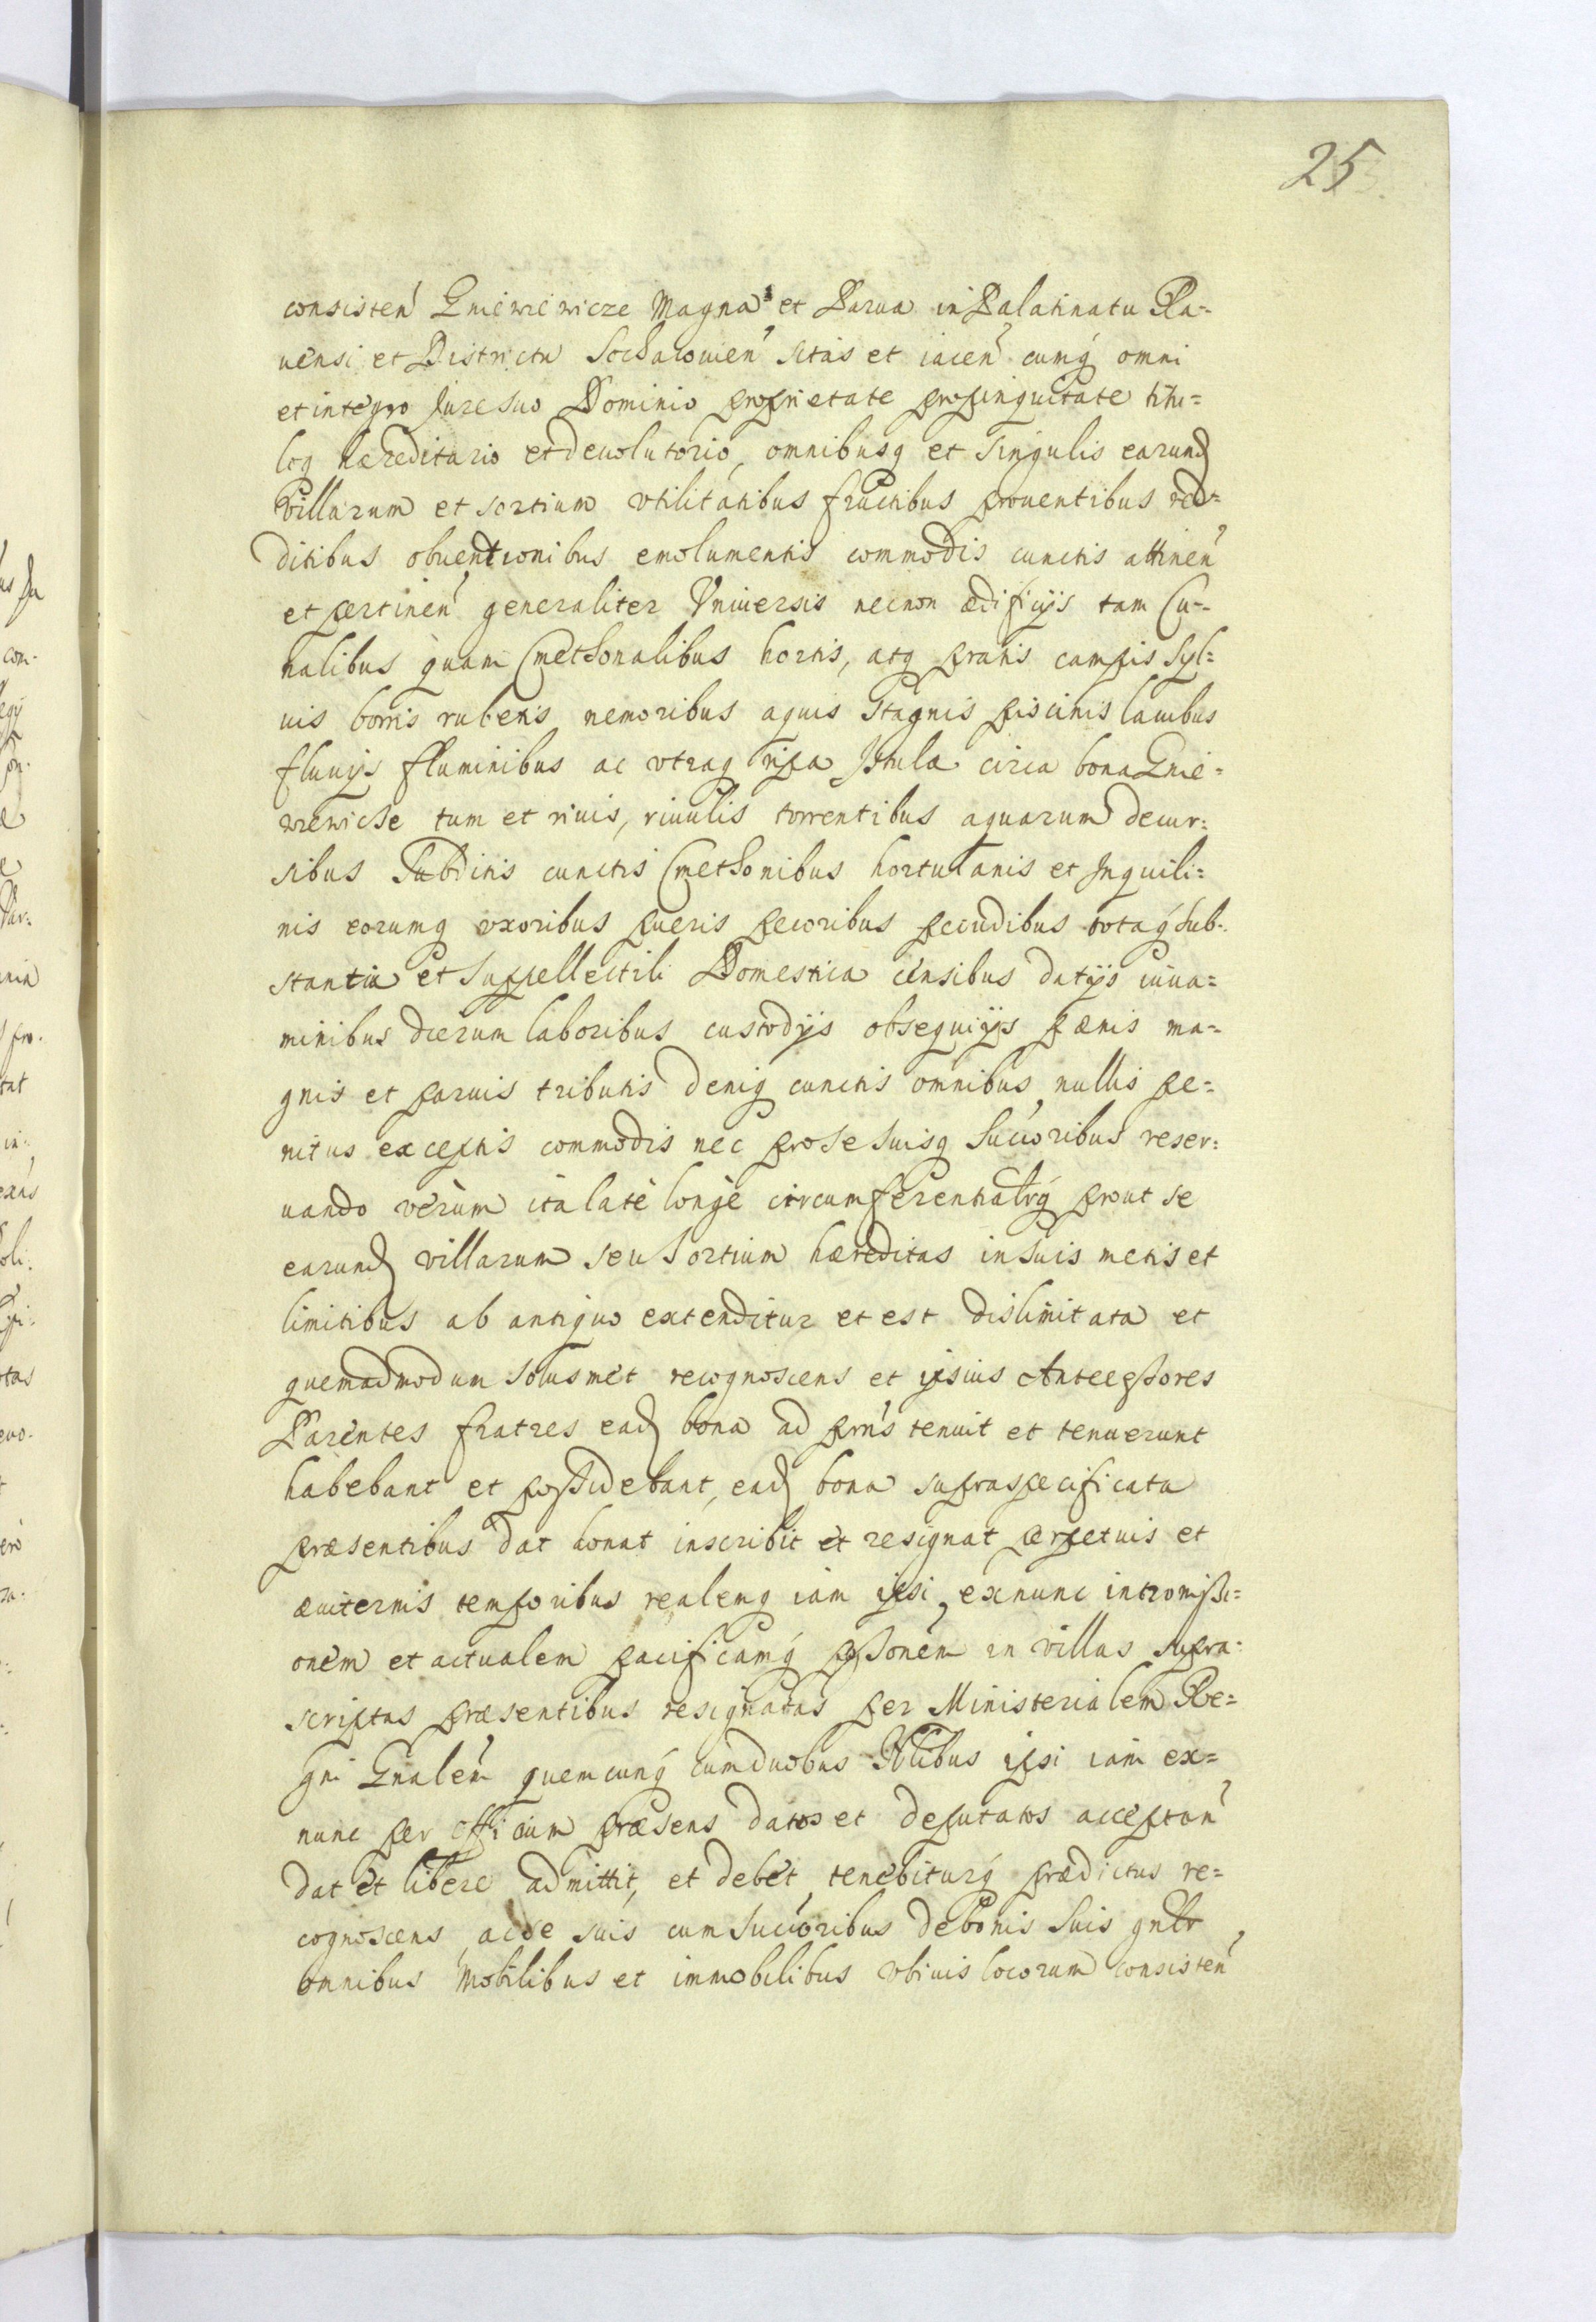 25
consisten Gniewiewicze Magna et Parua in Palatinatu Ra-
uensi et Districtu Sochaczouien sitas et iacen cumq omni
et integro Jure suo Dominio proprietate propinquitate titu=
loq hæreditario et deuolutorio, omnibusq et singulis earund
villarum et sortium vtilitatibus fructibus prouentibus red=
ditibus obuentionibus emolumentis commodis cunctis attinen
et pertinen generaliter Vniuersis necnon ædificijs tam Cu=
rialibus quam Cmethonalibus hortis, atq pratis campis Syl=
uis borris rubetis nemoribus aquis Stagnis piscinis lacubus
fluuijs fluminibus ac vtraq ripa Istulæ circa bona Gnie=
wiewicze tum et riuis, riuulis torrentibus aquarum decur=
sibus Subditis cunctis Cmethonibus hortulanis et Inquili=
nis eorumq vxoribus pueris pecoribus pecudibus totaq Sub=
stantia et Suppellectili Domestica censibus datijs iuua=
minibus dierum laboribus custodijs obsequijs pænis ma=
gnis et paruis tributis deniq cunctis omnibus, nullis pe=
nitus exceptis commodis nec pro se suisq Succoribus reser=
uando verùm ita latè longè circumferentialrq prout se
earund villarum seu Sortium hæreditas in suis metis et
limitibus ab antiquo extenditur et est dislimitata et
quemadmodum solusmet recognoscens et ipsius Antecessores
Parentes fratres ead bona ad prns tenuit et tenuerunt
habebant et possidebant, ead bona supraspecificata
præsentibus dat donat inscribit et resignat perpetuis et
æuiternis temporibus realemq iam ipsi, exnunc intromissi=
onem et actualem pacificamq possonem in villas supra=
scriptas præsentibus resignatas per Ministerialem Re=
gni Gnalem quemcunq cum duobus Nlibus ipsi iam ex=
nunc per officium præsens datos et deputatos acceptan
dat et libere admittit, et debet, tenebiturq prædictus re=
cognoscens, ac de suis cum Succoribus de bonis suis gnlr
omnibus mobilibus et immobilibus vbiuis locorum consisten